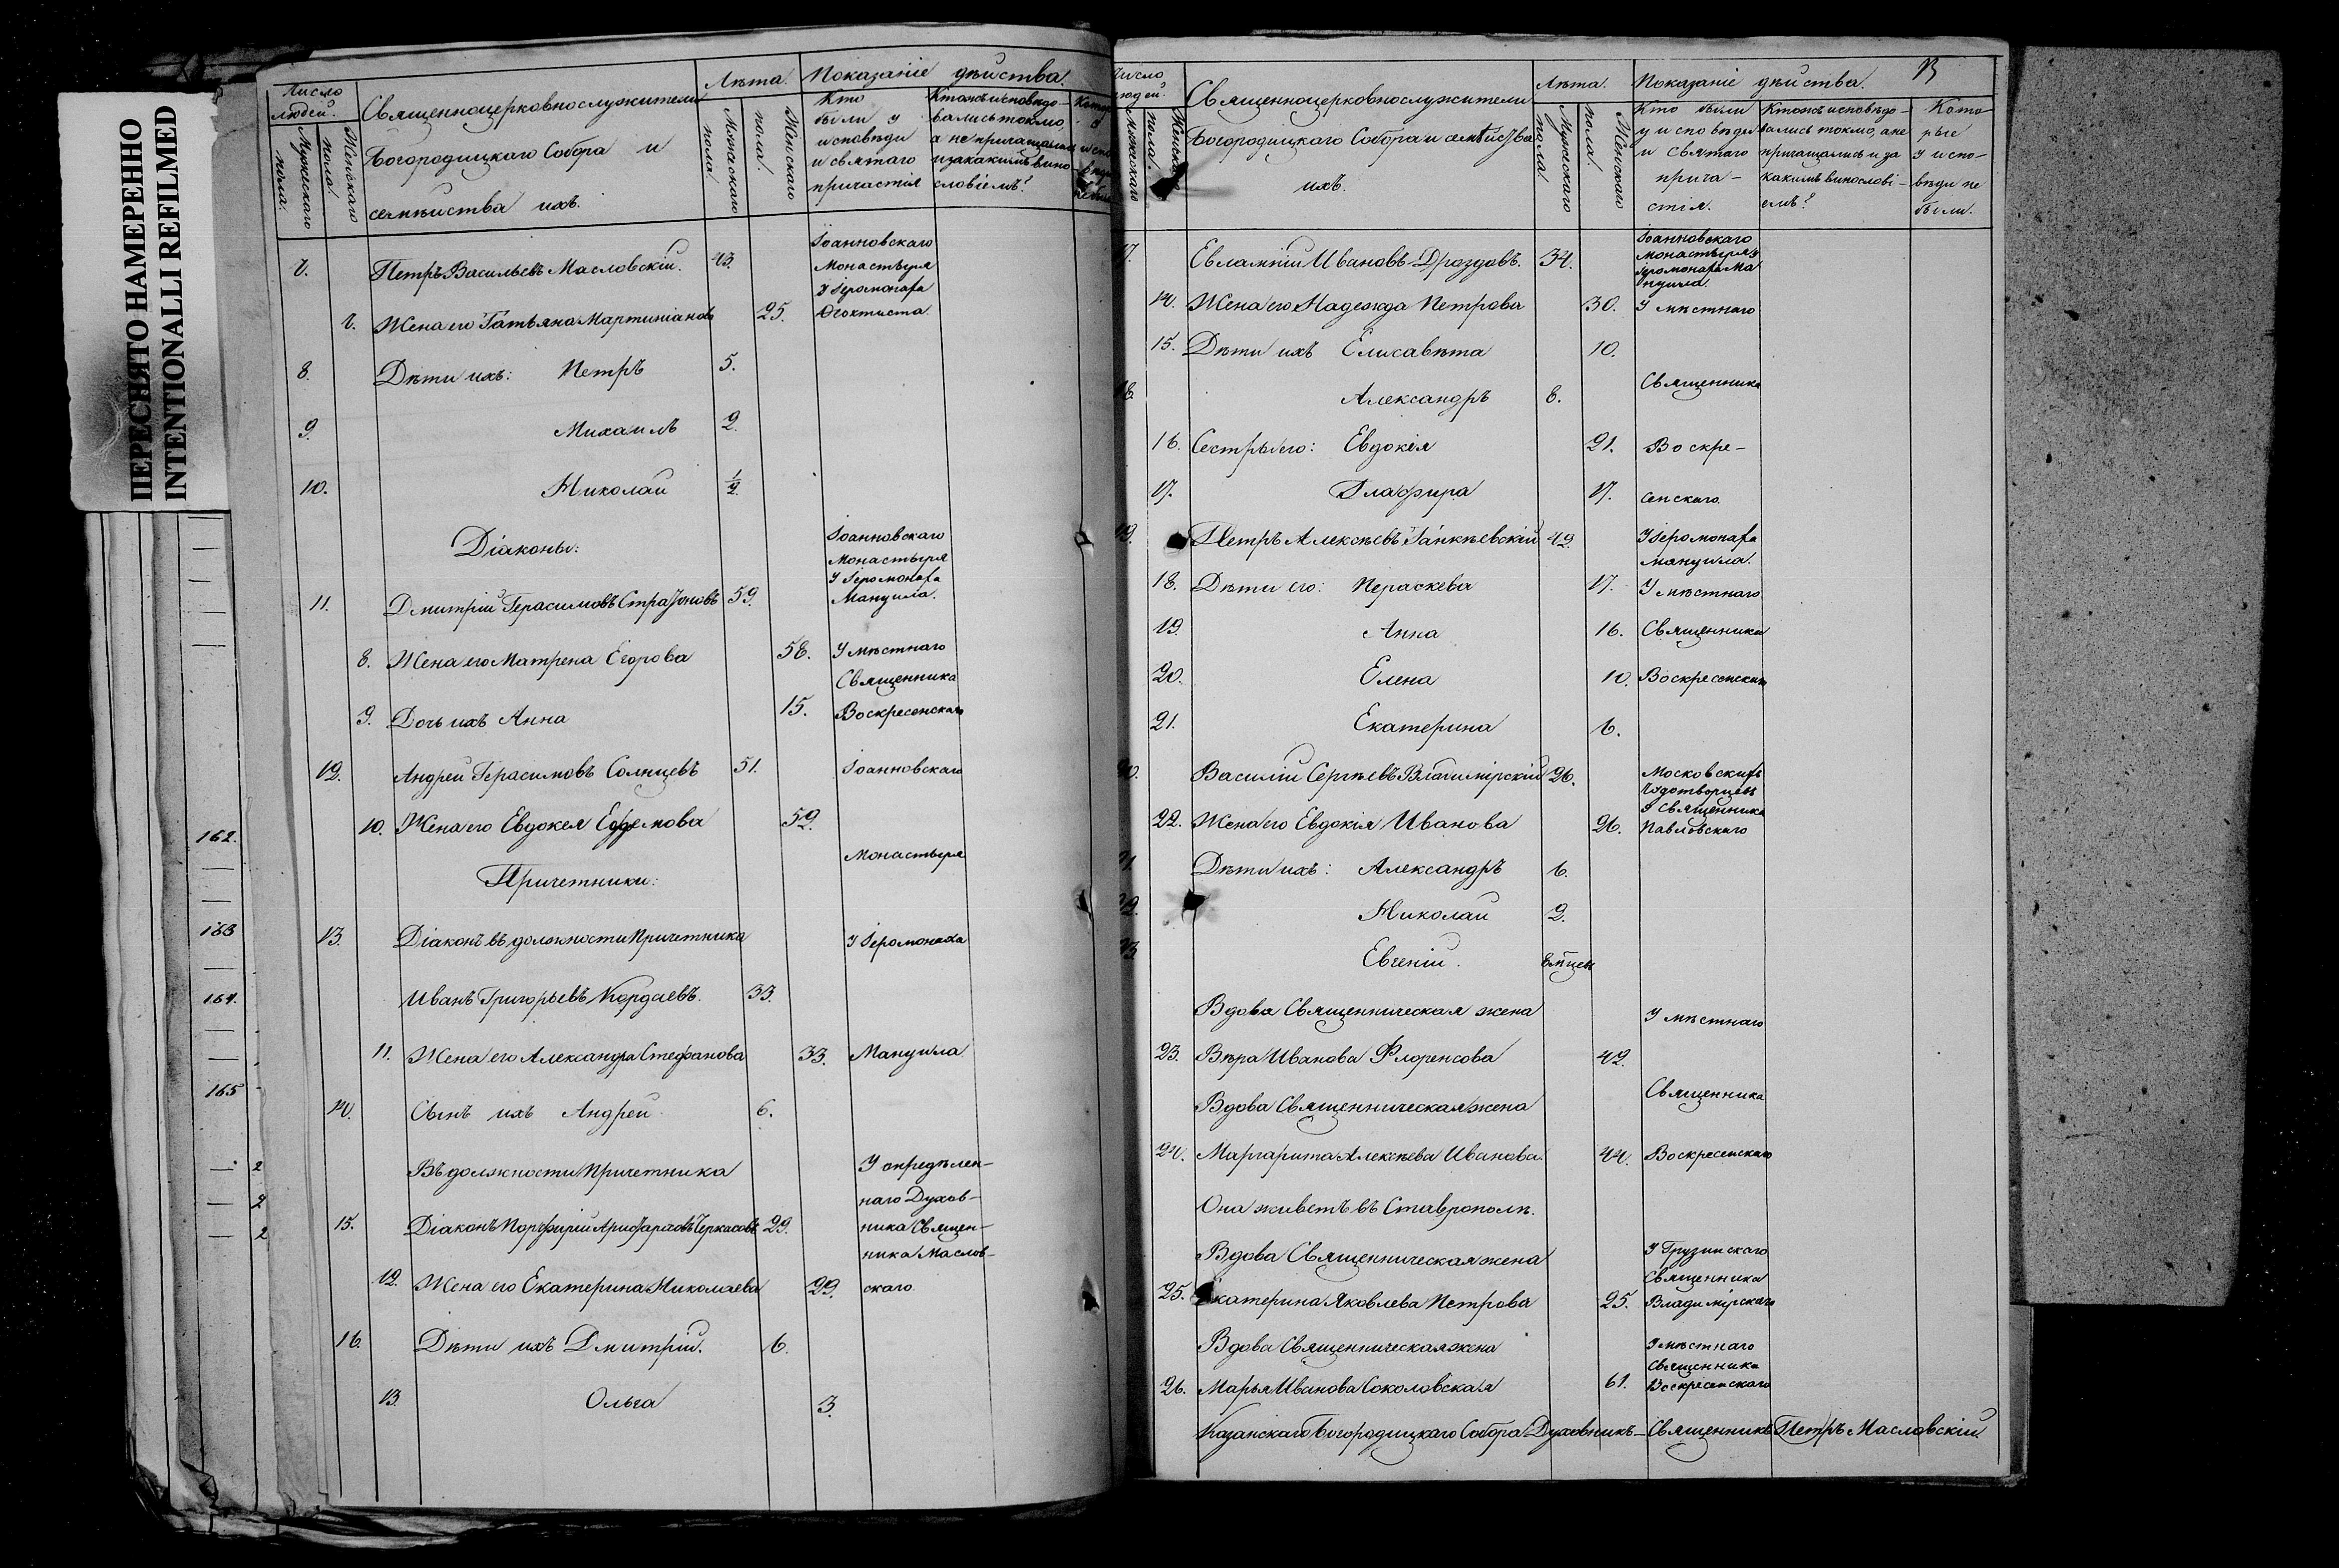 ПЕРЕСНЯТО НАМЕРЕННО
INTENTIONALLI REFILMED
162.
163
164.
165
2
2
2
Число людей.
Мужскаго пола.
Женскаго пола.
Священноцерковнослужители
Богородицкаго Собора и
семѣйства ихъ.
Лѣта.
Мужескаго пола.
Женскаго пола.
Показаніе дѣйства.
Кто были у исповѣди и святаго причастія
Ктожъ исповѣдовались токмо, а не причащались и за какимъ винословіемъ?
7. Петръ Васильевъ Масловскій. 43. Іоанновскаго
Монастыря
У Іеромонаха
7. Жена его Татьяна Мартиніанова 25. Ѳеоктиста
8. Дѣти ихъ: Петръ 5.
9. Михаилъ 2.
10. Николай ½.
Діаконы: Іоанновскаго
Монастыря
У Іеромонаха
11. Дмитрій Герасимовъ Стратоновъ 59. Мануила.
8. Жена его Матрена Егорова 58. У мѣстнаго
Священника
9. Дочь ихъ Анна 15. Воскресенскаго
12. Андрей Герасимовъ Солнцевъ 51. Іоанновскаго
10. Жена его Евдокея Ефремова 52.
Монастыря
Причетники:
13. Діаконъ въ должности Причетника У Іеромонаха
Иванъ Григорьевъ Кордаевъ. 33.
11. Жена его Александра Стефанова 33. Мануила
14. Сынъ ихъ Андрей 6.
Въ должности Причетника У опредѣлен-
наго Духов-
15. Діаконъ Порфирій Аристарховъ Черкасовъ 29. ника Священ-
ника Маслов-
12. Жена его Екатерина Николаева 29. скаго.
16. Дѣти ихъ Дмитрій. 6.
13. Ольга 3.
Число людей.
Мужскаго
Женскаго пола.
Священноцерковнослужители
Богородицкаго Собора и семѣйства
ихъ.
Лѣта.
Мужескаго пола.
Женскаго пола.
Показаніе дѣйства.
Кто были у исповѣди и святаго причастія.
Ктожъ исповѣдовались токмо, а не причащались и за какимъ винословіемъ?
Которые у исповѣди не были.
17. Евлампій Ивановъ Дроздовъ. 34. Іоанновскаго
Монастыря у
Іеромонаха Ма
нуила.
14. Жена его Надежда Петрова 30. У мѣстнаго
15. Дѣти ихъ Елисавѣта 10.
18. Александръ 8. Священника
16. Сестры его: Евдокія 21. Воскре-
17. Глафира 17. сенскаго
19. Петръ Алексѣевъ Ганкѣевскій 42. У Іеромонаха
мануила.
18. Дѣти его: Параскева 17. У мѣстнаго
19. Анна 16. Священника
20. Елена 10. Воскресенскаго
21. Екатерина 6.
20. Василій Сергѣевъ Владимірскій 26. Московскихъ
Чудотворцевъ
У Священника
22. Жена его Евдокія Иванова 26. Павловскаго
21. Дѣти ихъ: Александръ 6.
22. Николай 2.
23. Евгеній.
Вдова Священническая жена У мѣстнаго
23. Вѣра Иванова Флоренсова 42.
Вдова Священническая жена Священника
24. Маргарита Алексѣева Иванова. 44. Воскресенскаго
Она живетъ въ Ставрополѣ.
Вдова Священническая жена У Грузинскаго
Священника
25. Екатерина Яковлева Петрова 25. Владимірскаго
Вдова Священническая жена У мѣстнаго
Священника
26. Марья Иванова Соколовская 61. Воскресенскаго
Казанскаго Богородицкаго Собора Духовникъ – Священникъ Петръ Масловскій